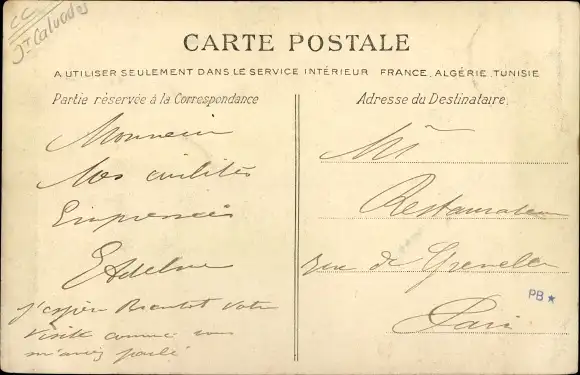 CC
Jt Calvados
CARTE POSTALE
A UTILISER SEULEMENT DANS LE SERVICE INTÉRIEUR FRANCE, ALGÉRIE, TUNISIE
Partie réservée à la Correspondance
Monsieur
Mes civilités
Empressées
J'espère Bientot votre
visite comme vous
m'avez parlé
Adresse du Destinataire.
Mr
Restaurateur
rue de Grenelle
Paris
PB★